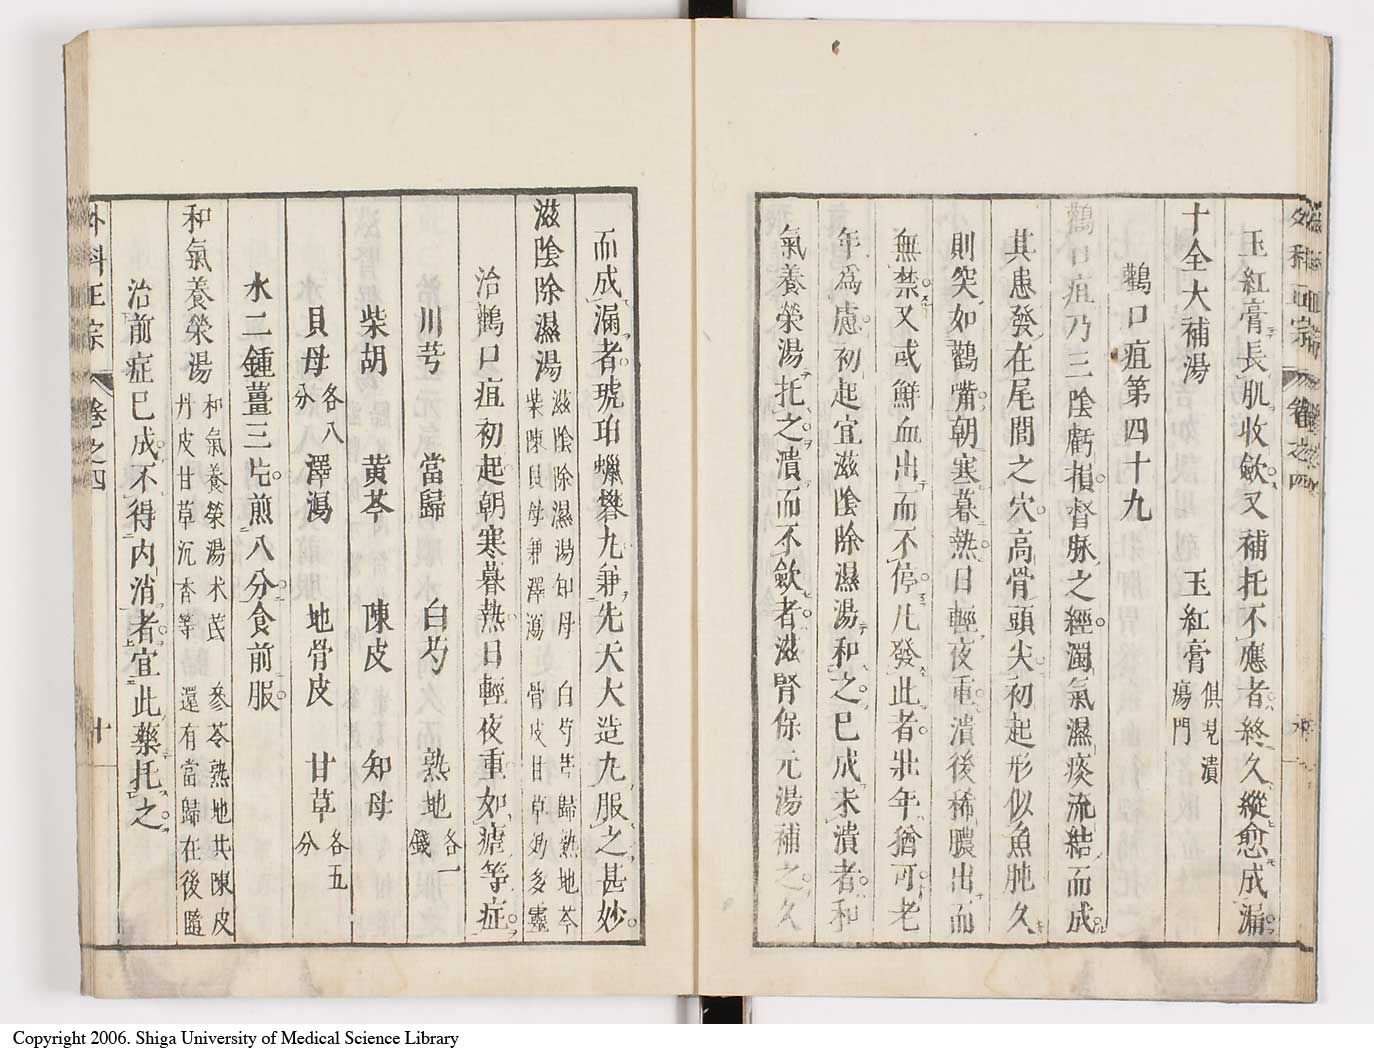 玉紅膏長肌收斂又補托不應者終久縱愈成漏
十全大補湯　玉紅膏俱見潰瘍門
鸛口疽第四十九
鸛口疽乃三陰虧損督脉之經濁氣濕痰流結而成
其患發在尾閭之穴高骨頭尖初起形似魚肫久
則突如鸛嘴朝寒暮熱日輕夜重潰後稀膿出而
無禁又或鮮血出而不停凡發此者壯年猶可老
年為慮初起宜滋陰除濕湯和之已成未潰者和
氣養榮湯托之潰而不歛者滋腎保元湯補之久
外科正宗　卷之四
而成漏者琥珀蠟礬丸兼先天大造丸服之甚妙
滋陰除濕湯
滋陰除濕湯知母　白芍芎歸熟地芩
柴陳貝母兼澤瀉　骨皮甘草効多靈
治鸛口疽初起朝寒暮熱日輕夜重如瘧等症
川芎　當歸　白芍　熟地各一錢
柴胡　黃芩　陳皮　知母
貝母各八分　澤瀉　地骨皮　甘草各五分
水二鍾薑三片煎八分食前服
和氣養榮湯
和氣養榮湯术茋　參苓熟地共陳皮
丹皮甘草沉香等　還有當歸在後隨
治前症已成不得内消者宜此藥托之
外科正宗　卷之四　十
Copyright 2006. Shiga University of Medical Science Library